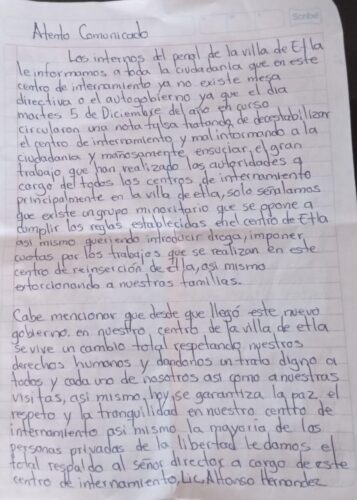 Scribe
Atento Comunicado
Los internos del penal de la villa de Etla
le informamos a toda la ciudadanía que en este
centro de internamiento ya no existe mesa
directiva o el autogobierno ya que el día
martes 5 de Diciembre del año en curso
circularon una nota falsa tratando de desestabilizar
el centro de internamiento y mal informando a la
ciudadanía y mañosamente ensuciar, el gran
trabajo, que han realizado las autoridades a
cargo del todos los centros de internamiento
principalmente en la villa de etla, solo señalamos
que existe un grupo minoritario que se opone a
cumplir las reglas establecidas en el centro de Etla
así mismo queriendo introducir droga, imponer
cuotas por los trabajos que se realizan en este
centro de reinserción de Etla, así mismo
extorcionando a nuestros familias.
Cabe mencionar que desde que llegó este nuevo
gobierno. en nuestro centro de la villa de etla
Se vive un cambio total respetando nuestros
derechos humanos y dandonos un trato digno a
todos y cada uno de nosotros así como a nuestras
visitas, así mismo, hoy se garantiza la paz, el
respeto y la tranquilidad en nuestro centro de
internamiento así mismo la mayoría de las
personas privadas de la libertad le damos el
total respaldo al señor director a cargo de este
centro de internamiento, Lic. Alfonso Hernandez